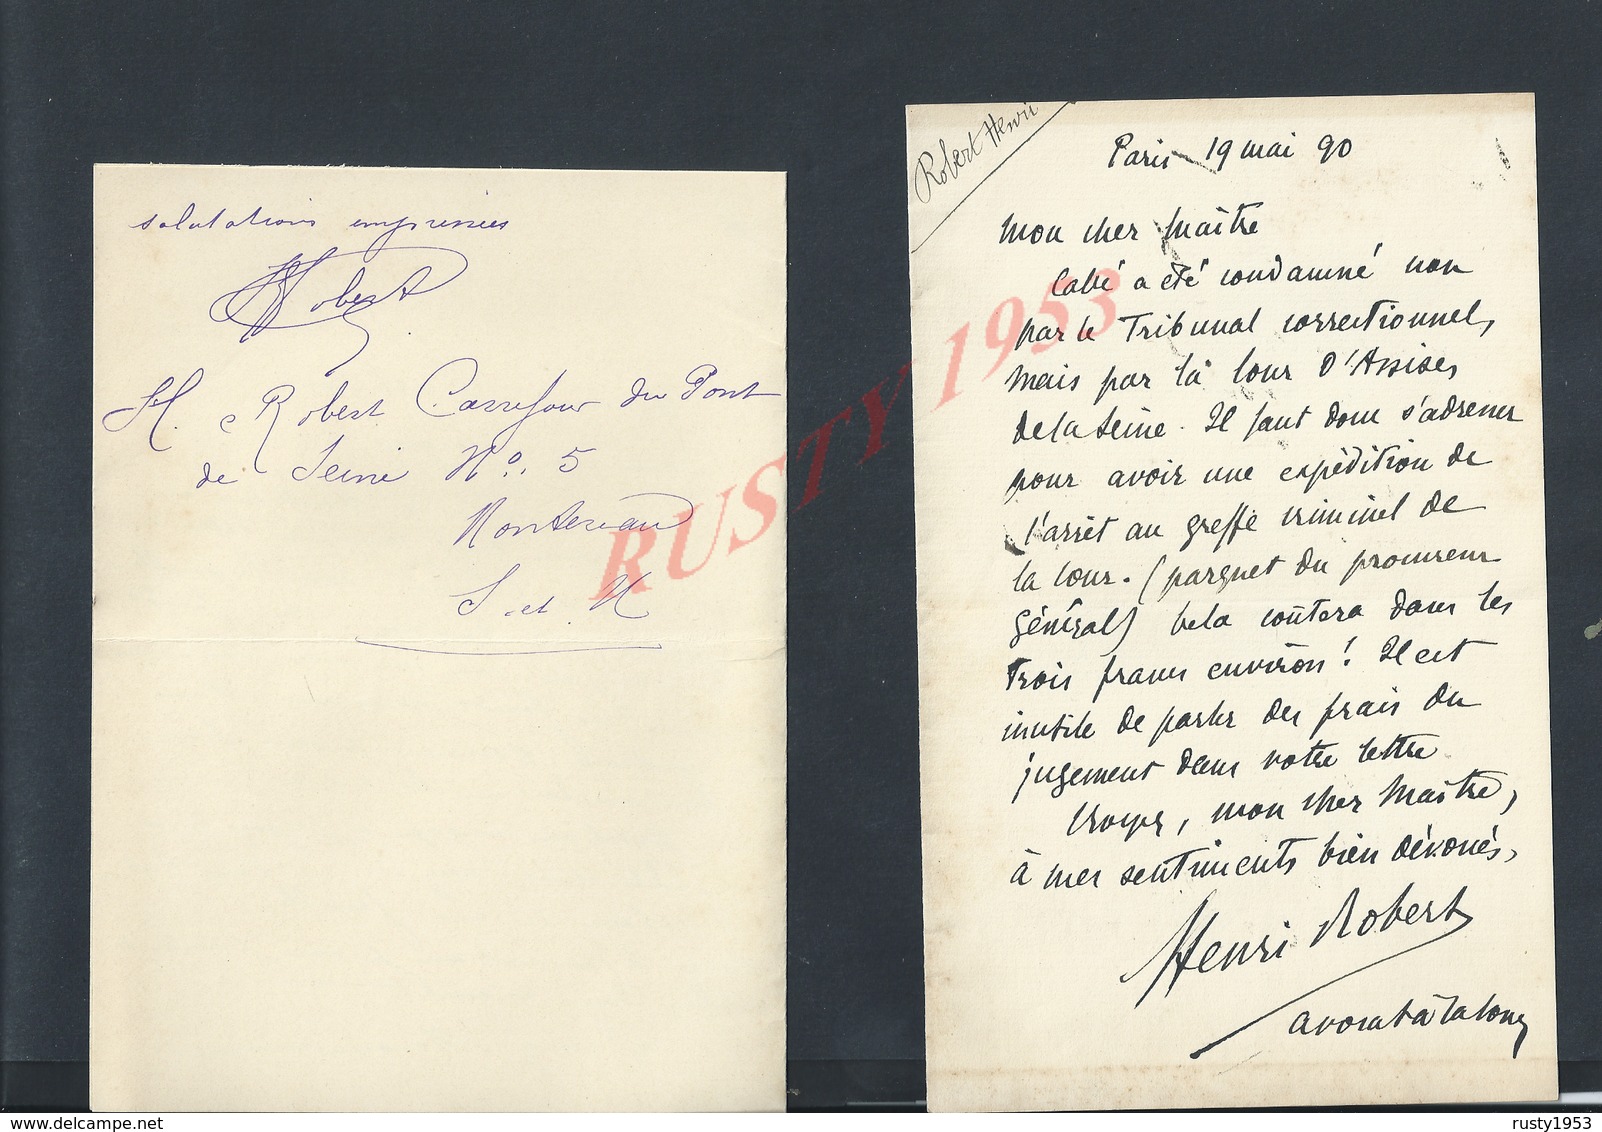 salutations empressées
HRobert
H. Robert Carrefour du Pont
de Seine No. 5
Montereau
S. et M
Robert Henri
Paris 19 mai 90
Mon cher Maître
a été condamné non
par le Tribunal correctionnel,
mais par la Cour d'Assises
de la Seine. Il faut donc s'adresser
pour avoir une expédition de
l'arrêt au greffe criminel de
la Cour. (parquet du procureur
Général) Cela coûtera dans les
trois francs environ! Il est
inutile de parler des frais du
jugement dans votre lettre
Croyez, mon cher Maître,
à mes sentiments bien dévoués,
Henri Robert
avocat à la Cour
RUSTY 1953
delcampe.net
rusty1953